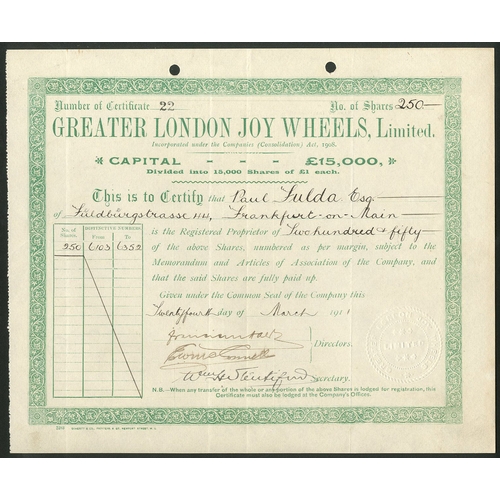 Number of Certificate 22 No. of Shares 250
GREATER LONDON JOY WHEELS, Limited.
Incorporated under the Companies (Consolidation) Act, 1908.
CAPITAL - - - £15,000,
Divided into 15,000 Shares of £1 each.
This is to Certify that Paul Fulda Esq
of Frankfurt-on-Main
is the Registered Proprietor of Two hundred & fifty
of the above Shares, numbered as per margin, subject to the
Memorandum and Articles of Association of the Company, and
that the said Shares are fully paid up.
No. of Shares. DISTINCTIVE NUMBERS
From To
250 6103 6352
Given under the Common Seal of the Company this
Twentyfourth day of March 1911
Directors.
Secretary.
N.B.—When any transfer of the whole or any portion of the above Shares is lodged for registration, this
Certificate must also be lodged at the Company's Offices.